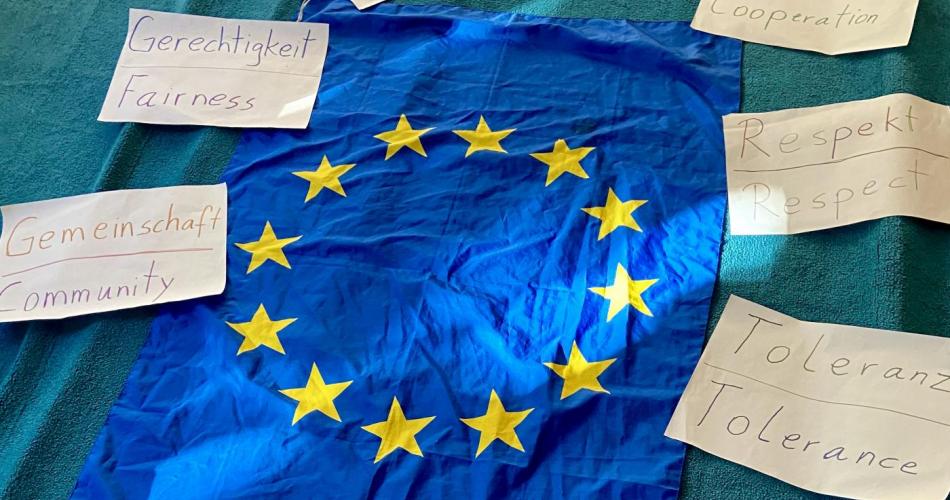 Gerechtigkeit
Fairness
Cooperation
Respekt
Respect
Gemeinschaft
Community
Toleranz
Tolerance